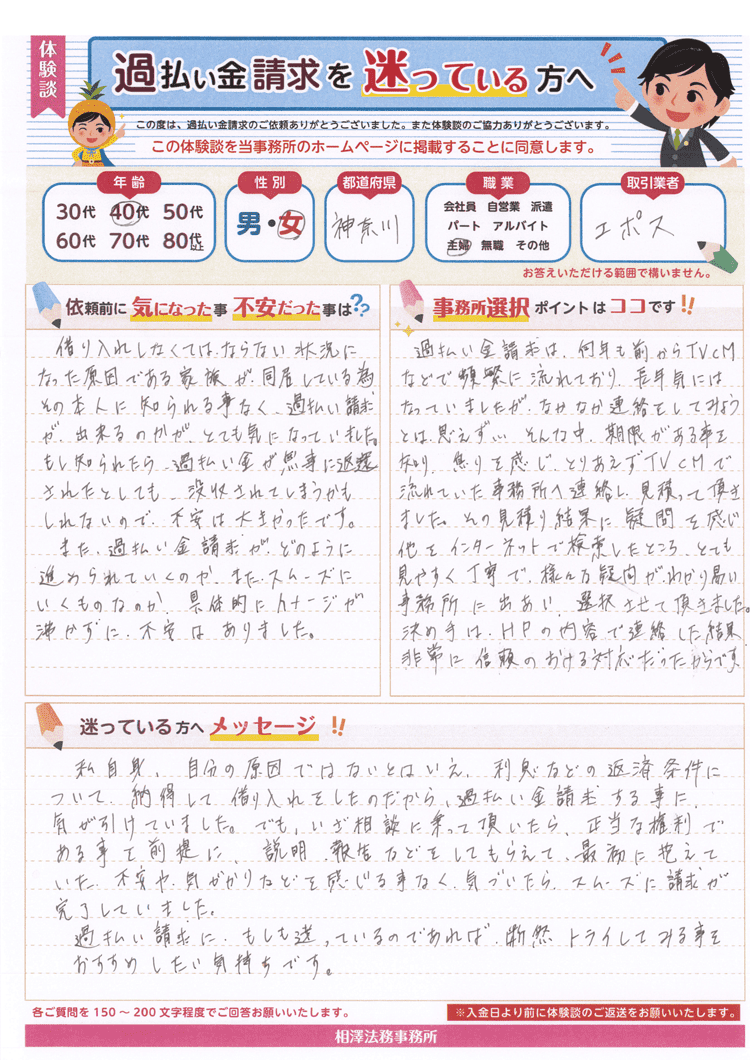 体験談
過払い金請求を迷っている方へ
この度は、過払い金請求のご依頼ありがとうございました。また体験談のご協力ありがとうございます。
この体験談を当事務所のホームページに掲載することに同意します。
年齢 性別 都道府県 職業 取引業者
30代 40代 50代
60代 70代 80代以上
男・女
神奈川
会社員 自営業 派遣
パート アルバイト
主婦 無職 その他
エポス
お答えいただける範囲で構いません。
依頼前に気になった事 不安だった事は??
借り入れしなくてはならない状況に
なった原因である家族が、同居している為
その本人に知られる事なく、過払い請求
が、出来るのかが、とても気になっていました。
もし知られたら、過払い金が無事に返還
されたとしても、没収されてしまうかも
しれないので、不安は大きかったです。
また、過払い金請求が、どのように
進められていくのか、また、スムーズに
いくものなのか、具体的にイメージが
沸かずに、不安はありました。
事務所選択ポイントはココです!!
過払い金請求は、何年も前からTVCM
などで頻繁に流れており、長年気には
なっていましたが、なかなか連絡をしてみよう
とは、思えず、、、そんな中、期限がある事を
知り、焦りを感じ、とりあえずTVCMで
流れていた事務所へ連絡し、見積って頂き
ました。その見積り結果に疑問を感じ
他をインターネットで検索したところ、とても
見やすく丁寧で、様々な疑問がわかり易い
事務所に出あい、選択させて頂きました。
決め手は、HPの内容で連絡した結果
非常に信頼のおける対応だったからです。
迷っている方へメッセージ!!
私自身、自分の原因ではないとはいえ、利息などの返済条件に
ついて、納得して借り入れをしたのだから、過払い金請求する事に、
気が引けていました。でも、いざ相談に乗って頂いたら、正当な権利で
ある事を前提に、説明、報告などをしてもらえて、最初に抱えて
いた、不安や、気がかりなどを感じる事なく、気づいたら、スムーズに請求が
完了していました。
過払い請求に、もしも迷っているのであれば、断然トライしてみる事を
おすすめしたい気持ちです。
各ご質問を150～200文字程度でご回答お願いいたします。
※入金日より前に体験談のご返送をお願いいたします。
相澤法務事務所